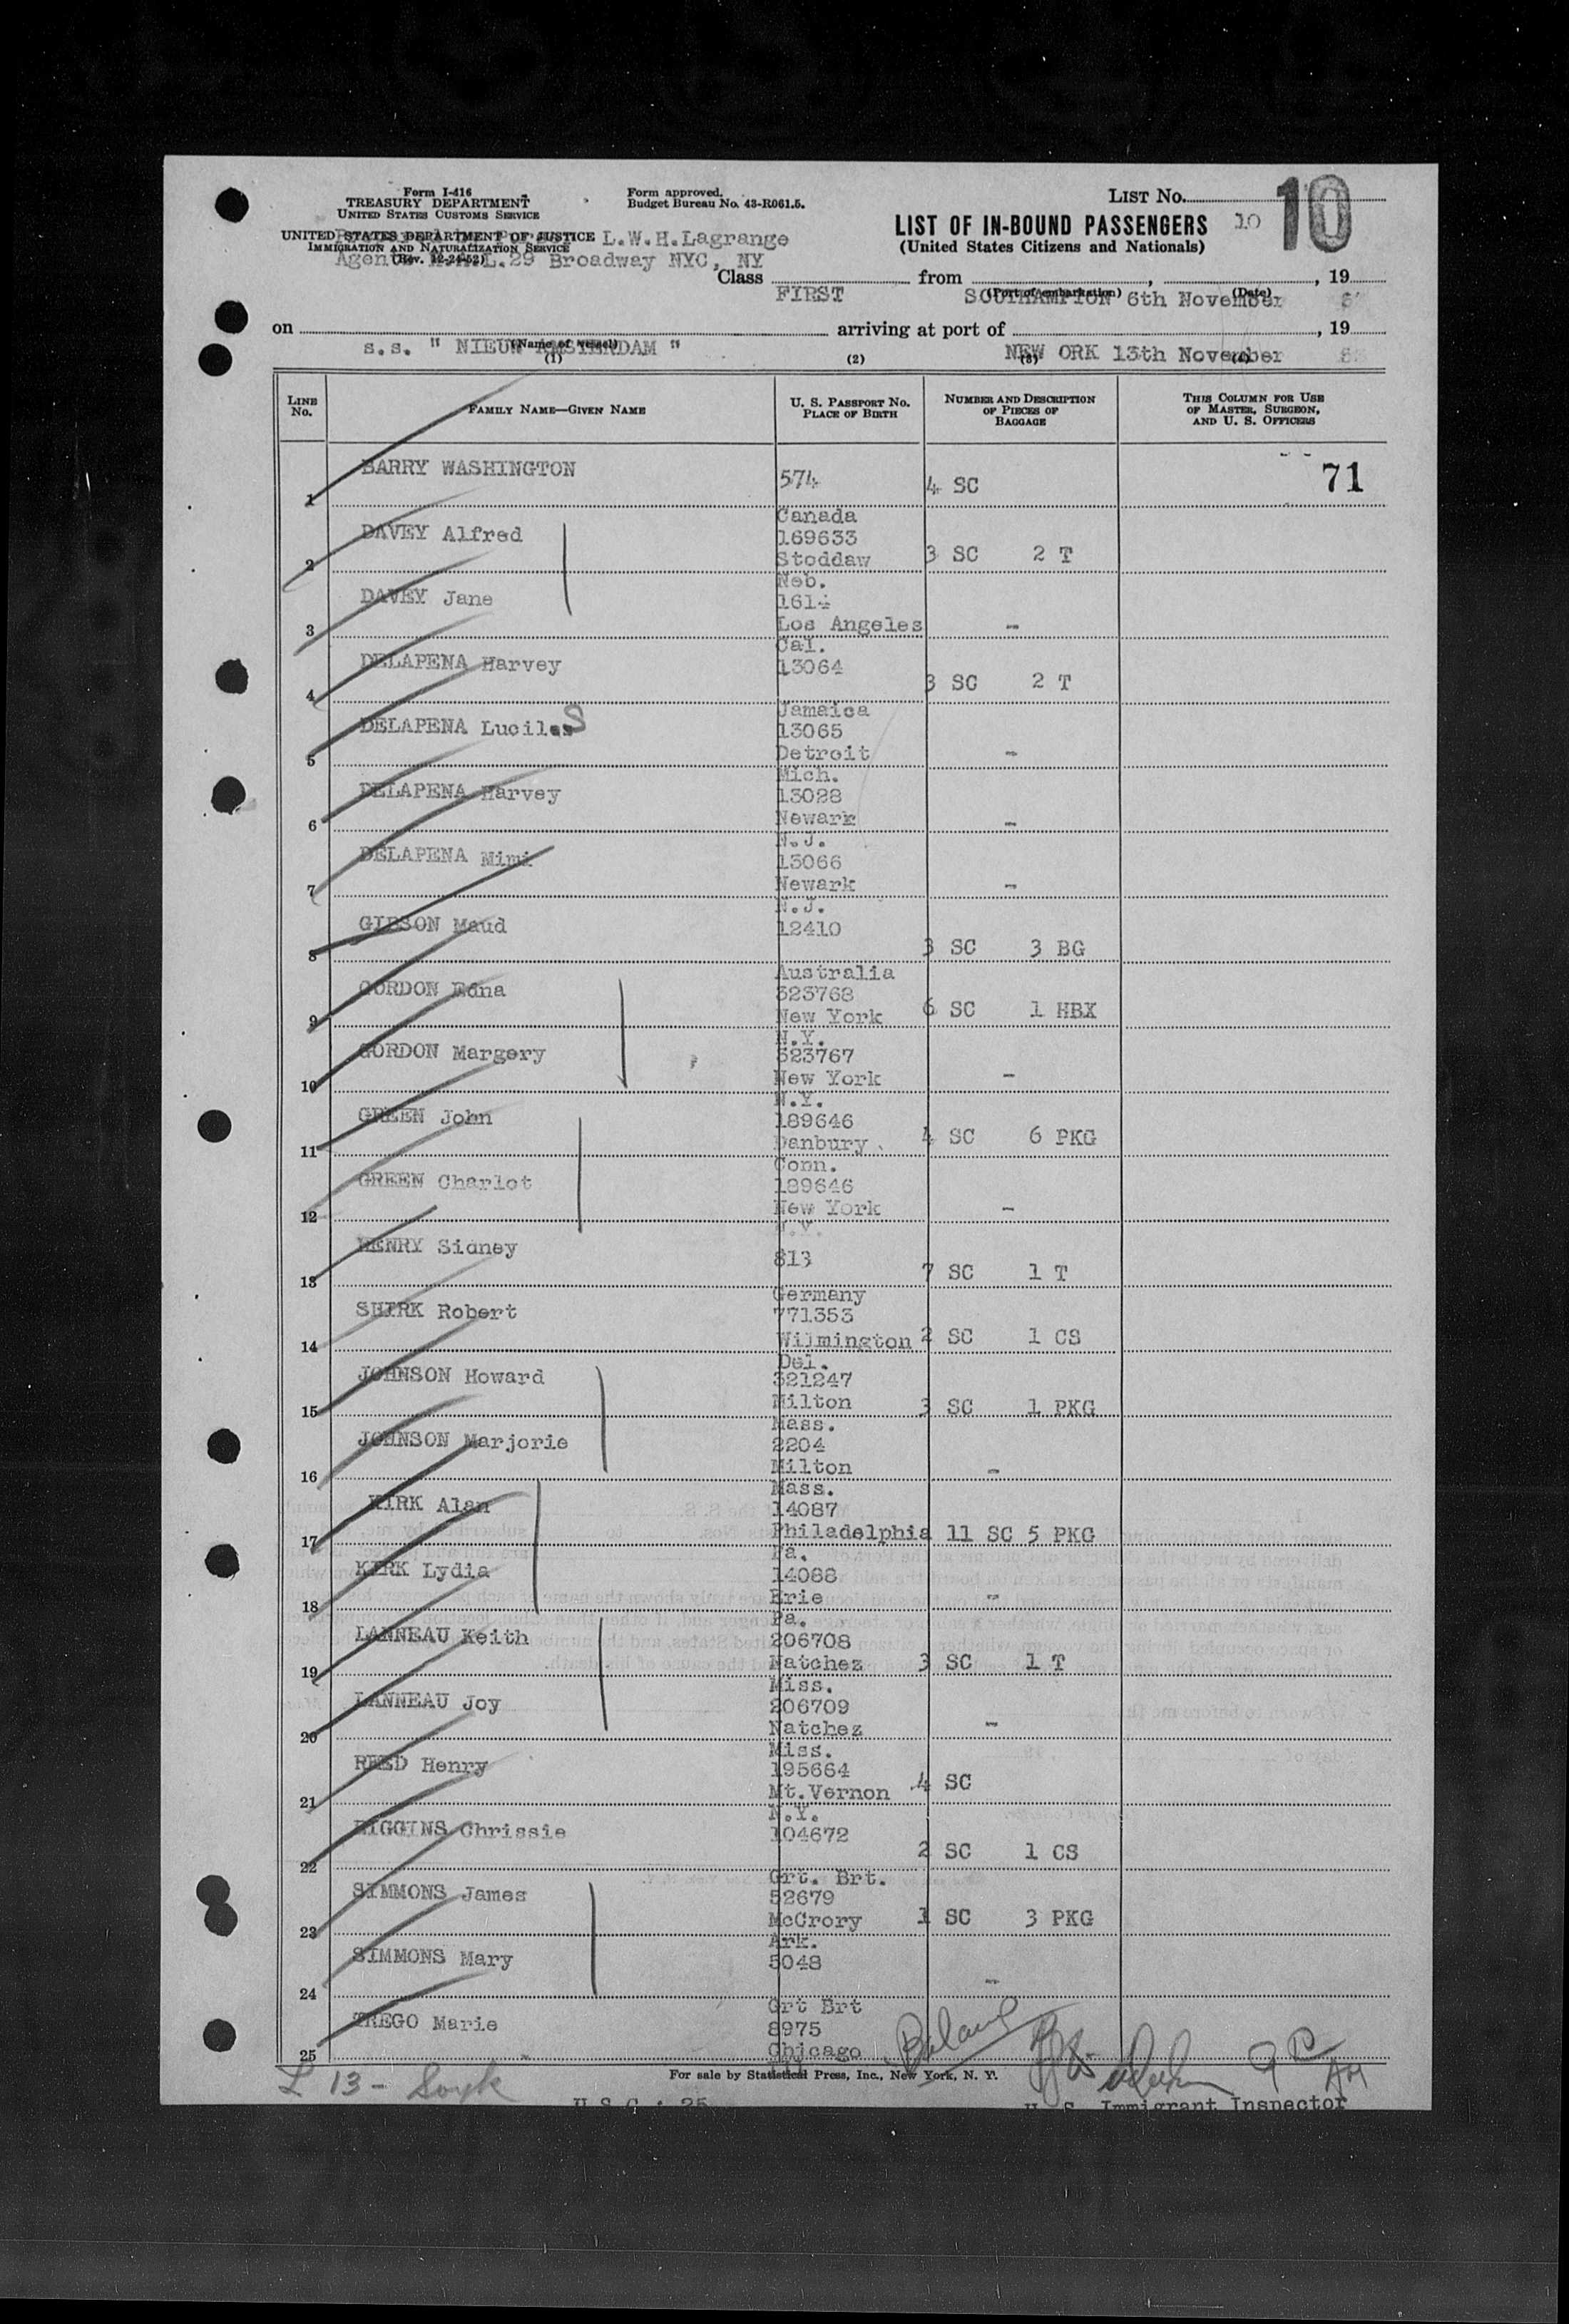 Form I-416
TREASURY DEPARTMENT
UNITED STATES CUSTOMS SERVICE
Form approved.
Budget Bureau No. 43-R061.5.
LIST No. 10
10
LIST OF IN-BOUND PASSENGERS
(United States Citizens and Nationals)
UNITED STATES DEPARTMENT OF JUSTICE
L.W.H.Lagrange
IMMIGRATION AND NATURALIZATION SERVICE
(Rev. 12-24-52)
Agent 29 Broadway NYC, NY
Class FIRST from SOUTHAMPTON 6th November, 19
(Port of embarkation) (Date)
on s.s. " NIEUW AMSTERDAM " arriving at port of NEW ORK 13th November, 19
(Name of vessel)
(1) (2) (3) (4)
LINE No. FAMILY NAME—GIVEN NAME U. S. PASSPORT NO. PLACE OF BIRTH NUMBER AND DESCRIPTION OF PIECES OF BAGGAGE THIS COLUMN FOR USE OF MASTER, SURGEON, AND U. S. OFFICERS
1 BARRY WASHINGTON 574 Canada 4 SC 71
2 DAVEY Alfred 169633 Stoddaw Neb. 3 SC 2 T
3 DAVEY Jane 1614 Los Angeles Cal. -
4 DELAPENA Harvey 13064 Jamaica 3 SC 2 T
5 DELAPENA Luciles 13065 Detroit Mich. -
6 DELAPENA Harvey 13028 Newark N.J. -
7 DELAPENA Mimi 13066 Newark N.J. -
8 GIBSON Maud 12410 Australia 3 SC 3 BG
9 GORDON Edna 323768 New York N.Y. 6 SC 1 HBX
10 GORDON Margery 323767 New York N.Y. -
11 GREEN John 189646 Danbury Conn. 4 SC 6 PKG
12 GREEN Charlot 189646 New York N.Y. -
13 HENRY Sidney 813 Germany 7 SC 1 T
14 SHIRK Robert 771353 Wilmington Del. 2 SC 1 CS
15 JOHNSON Howard 321247 Milton Mass. 3 SC 1 PKG
16 JOHNSON Marjorie 2204 Milton Mass. -
17 KIRK Alan 14087 Philadelphia Pa. 11 SC 5 PKG
18 KIRK Lydia 14088 Erie Pa. -
19 LANNEAU Keith 206708 Natchez Miss. 3 SC 1 T
20 LANNEAU Joy 206709 Natchez Miss. -
21 REED Henry 195664 Mt.Vernon N.Y. 4 SC
22 HIGGINS Chrissie 104672 Grt. Brt. 2 SC 1 CS
23 SIMMONS James 52679 McCrory Ark. 1 SC 3 PKG
24 SIMMONS Mary 5048 Grt Brt -
25 TREGO Marie 8975 Chicago
For sale by Statistical Press, Inc., New York, N. Y.
L 13 -
U S C : 25
U. S. Immigrant Inspector